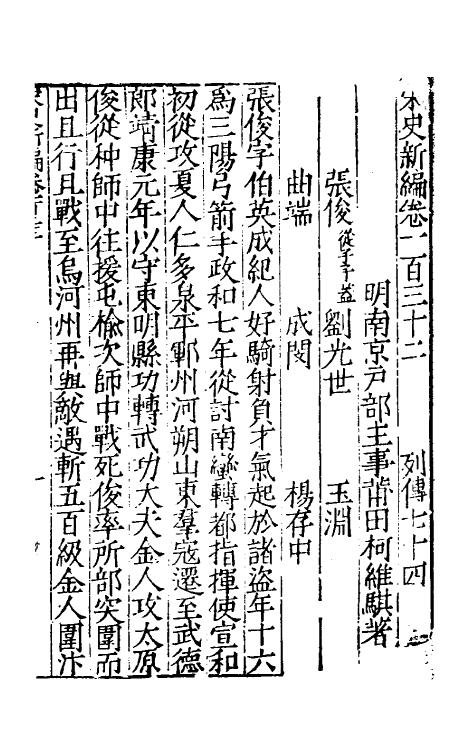 宋史新編卷一百三十二 列傳七十四
明南京戶部主事莆田柯維騏著
張俊從子子蓋 劉光世 王淵
曲端 成閔 楊存中
張俊字伯英成紀人好騎射負才氣起於諸盜年十六
爲三陽弓箭手政和七年從討南蠻轉都指揮使宣和
初從攻夏人仁多泉平鄆州河朔山東羣寇遷至武德
郎靖康元年以守東明縣功轉武功大夫金人攻太原
俊從种師中往援屯榆次師中戰死俊率所部突圍而
出且行且戰至烏河州再與敵遇斬五百級金人圍汴
一